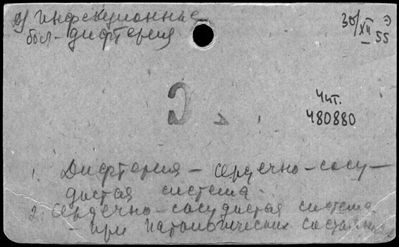 9) Инфекционные
бол-дифтерия
30/XII 55 э
Чит.
480880
С
1. Дифтерия - сердечно-сосу-
дистая система.
2. Сердечно-сосудистая система
при патологических состоян.